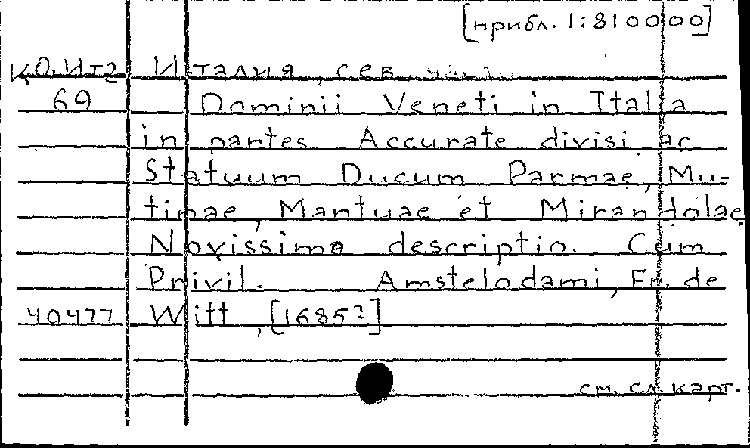 [прибл. 1:810000]
КО.Ит2 Италия, сев.
69 Dominii Veneti in Italia
in partes Accurate divisi ac
Statuum Ducum Parmae, Mu-
tinae, Mantuae et Mirandolae
Novissima descriptio. Cum
Privil. Amstelodami, Fr. de
40477 Witt, [1685?]
см. сл. карт.